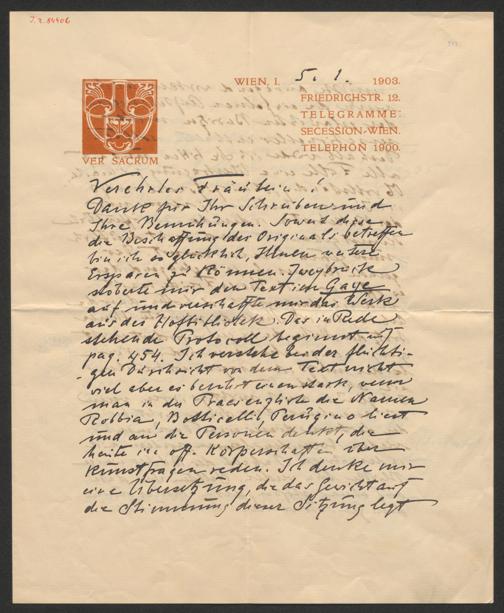 J.Z. 84406
WIEN, I. 5. 1. 1903.
FRIEDRICHSTR. 12.
TELEGRAMME:
SECESSION-WIEN.
TELEPHON 1900.
VER SACRUM
Verehrtes Fräulein!
Dank für Ihr Schreiben und
Ihre Bemühungen. Soweit diese
die Beschaffung des Originals betreffen
bin ich so glücklich, Ihnen weitere
Ersparen zu können. Zweybrück
stöberte mir den Text in Gaye
auf und verschaffte mir das Werk
aus der Hofbibliothek. Das in Rede
stehende Protocoll beginnt auf
pag. 454. Ich verstehe bei der flüchti-
gen Durchsicht von dem Text nicht
viel aber es berührt einen stark, wenn
man in der Praesenzliste die Namen
Robbia, Botticelli, Perugino liest
und an die Personen denkt, die
heute in off. Körperschaften über
Kunstfragen reden. Ich denke mir
eine Übersetzung, die das Gewicht auf
die Stimmung dieser Sitzung legt